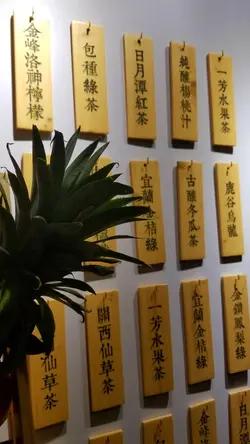 一芳水果茶
純釀楊桃汁
日月潭紅茶
包種綠茶
金峰洛神檸檬
鹿谷烏龍
古釀冬瓜茶
宜蘭金桔綠
金鑽鳳梨綠
宜蘭金桔綠
一芳水果茶
關西仙草茶
仙草茶